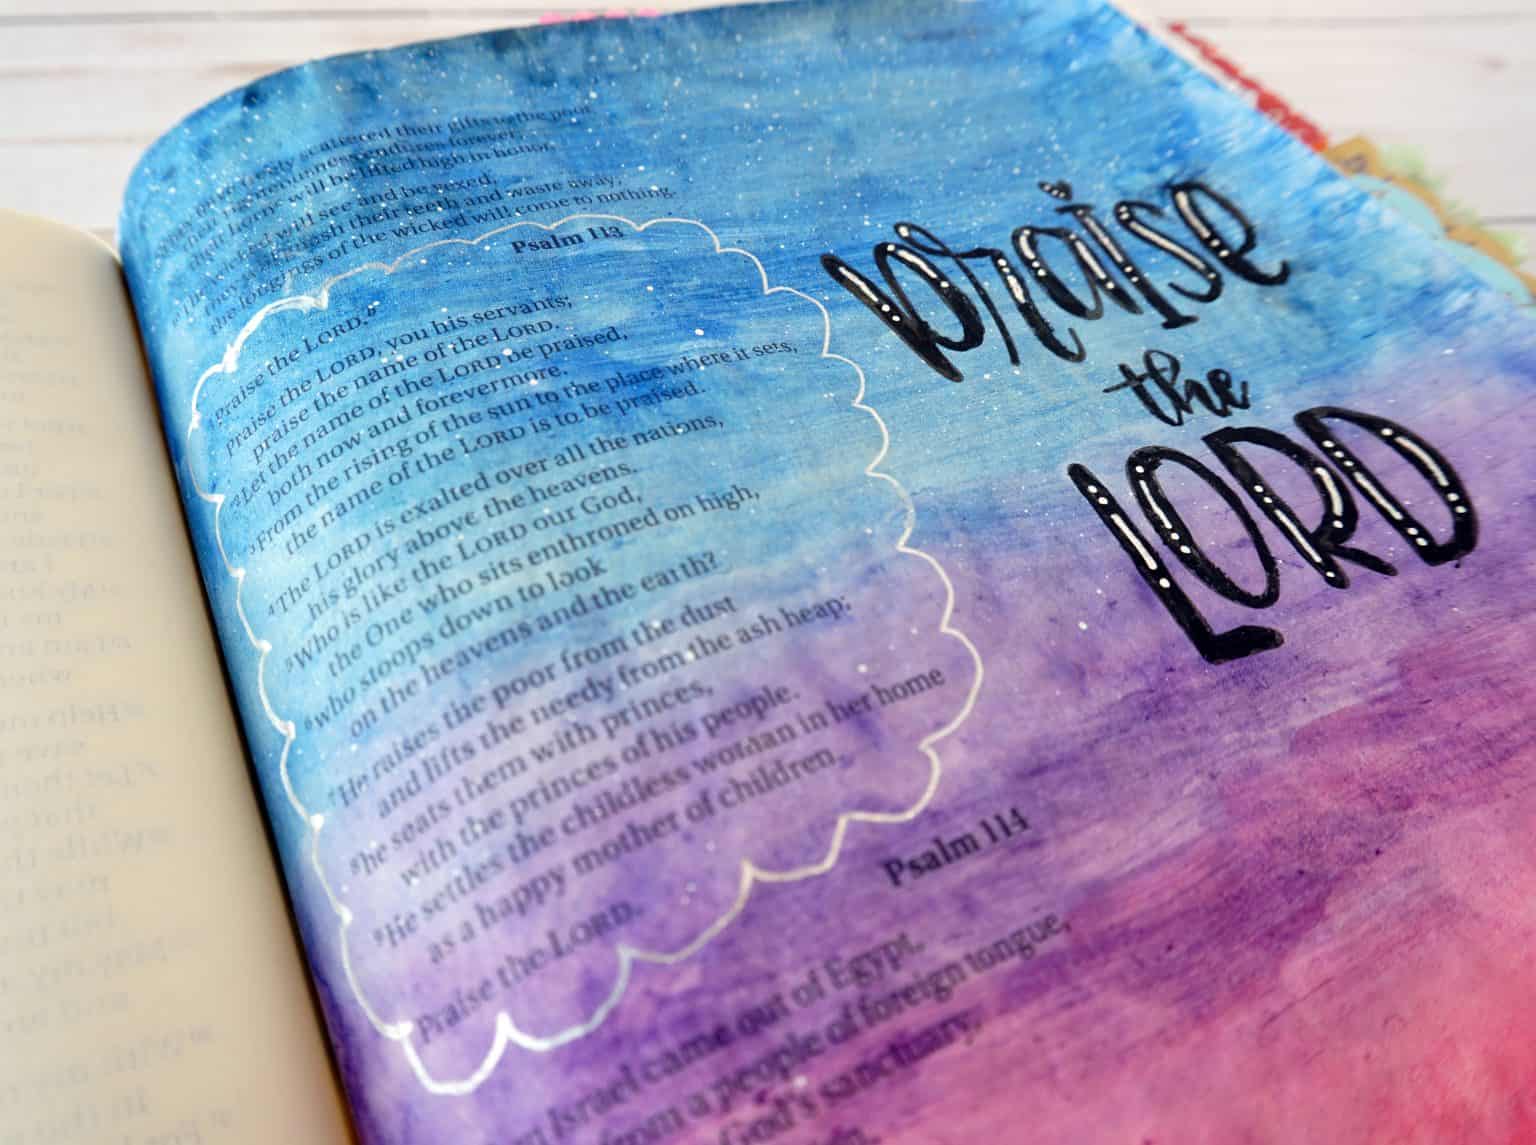 scattered their gifts to the poor,
righteousness endures forever;
will be lifted high in honor.
will see and be vexed,
their teeth and waste away;
the longings of the wicked will come to nothing.
Psalm 113
Praise the LORD.
Praise the LORD, you his servants;
praise the name of the LORD.
2 Let the name of the LORD be praised,
both now and forevermore.
3 From the rising of the sun to the place where it sets,
the name of the LORD is to be praised.
4 The LORD is exalted over all the nations,
his glory above the heavens.
5 Who is like the LORD our God,
the One who sits enthroned on high,
6 who stoops down to look
on the heavens and the earth?
7 He raises the poor from the dust
and lifts the needy from the ash heap;
8 he seats them with princes,
with the princes of his people.
9 He settles the childless woman in her home
as a happy mother of children.
Praise the LORD.
Psalm 114
Israel came out of Egypt,
from a people of foreign tongue,
God's sanctuary,
praise
the
LORD